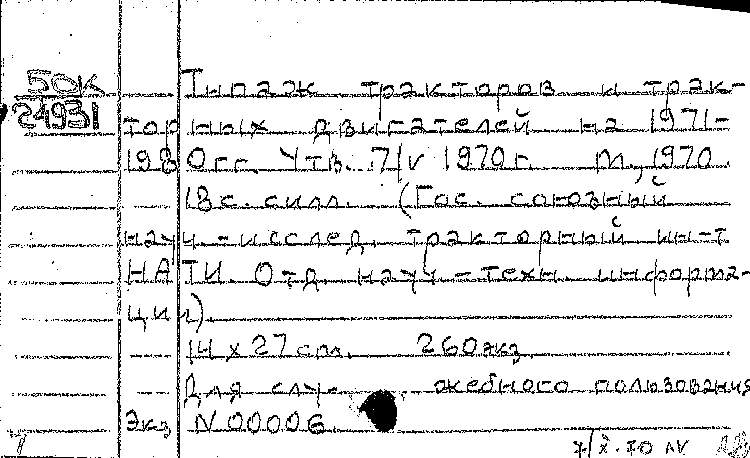 50К
24931
Типаж тракторов и трак-
торных двигателей на 1971-
1980гг. Утв. 7/V 1970г. М., 1970
18с. с илл. (Гос. союзный
науч.-исслед. тракторный ин-т
НАТИ. Отд. науч.-техн. информа-
ции).
14 х 27 см. 260 экз
Для служебного пользования
Экз N 00006.
7/X.70